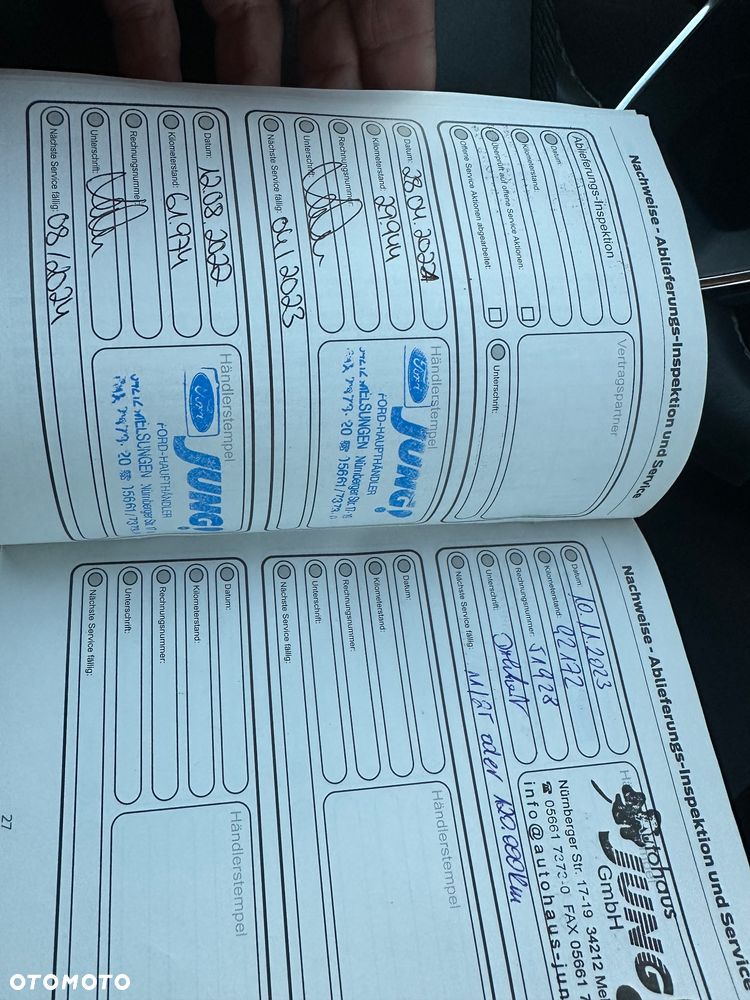 Nachweise - Ablieferungs-Inspektion und Service
Ablieferungs-Inspektion
Datum:
Kilometerstand:
Überprüft auf offene Service Aktionen:
Offene Service Aktionen abgearbeitet:
Vertragspartner
Unterschrift:
Datum: 28.04.2021
Kilometerstand: 29944
Rechnungsnummer:
Unterschrift:
Nächste Service fällig: 04/2023
Händlerstempel
JUNG
FORD-HAUPTHÄNDLER
MELSUNGEN Nürnberger Str. 17
Datum: 12.08.2022
Kilometerstand: 61974
Rechnungsnummer:
Unterschrift:
Nächste Service fällig: 08/2024
Händlerstempel
JUNG
FORD-HAUPTHÄNDLER
MELSUNGEN Nürnberger Str. 17
Nachweise - Ablieferungs-Inspektion und Service
Datum: 10.11.2023
Kilometerstand: 92172
Rechnungsnummer: 51928
Unterschrift:
Nächste Service fällig: 11/25 oder 120.000km
Autohaus
JUNG
GmbH
Nürnberger Str. 17-19 34212 Me
☎ 05661 7373-0 FAX 05661 7
info@autohaus-jun
Datum:
Kilometerstand:
Rechnungsnummer:
Unterschrift:
Nächste Service fällig:
Händlerstempel
Datum:
Kilometerstand:
Rechnungsnummer:
Unterschrift:
Nächste Service fällig:
Händlerstempel
27
OTOMOTO